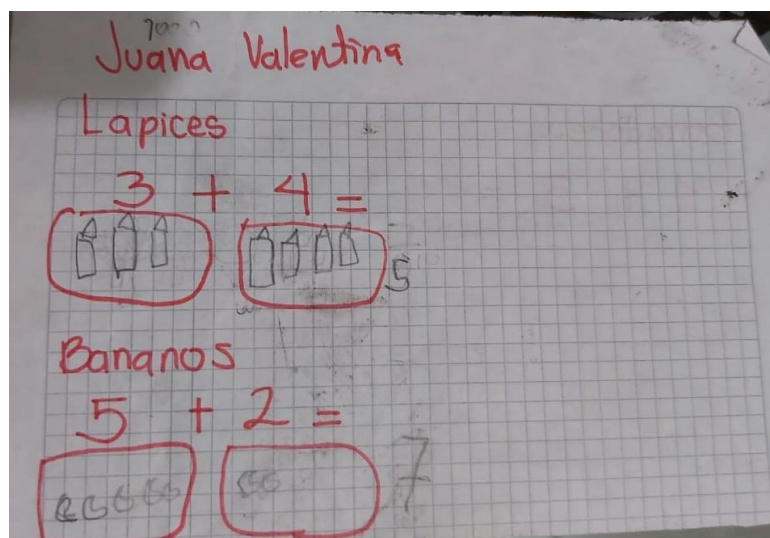 Juana Valentina
Lapices
3 + 4 =
5
Bananos
5 + 2 =
7